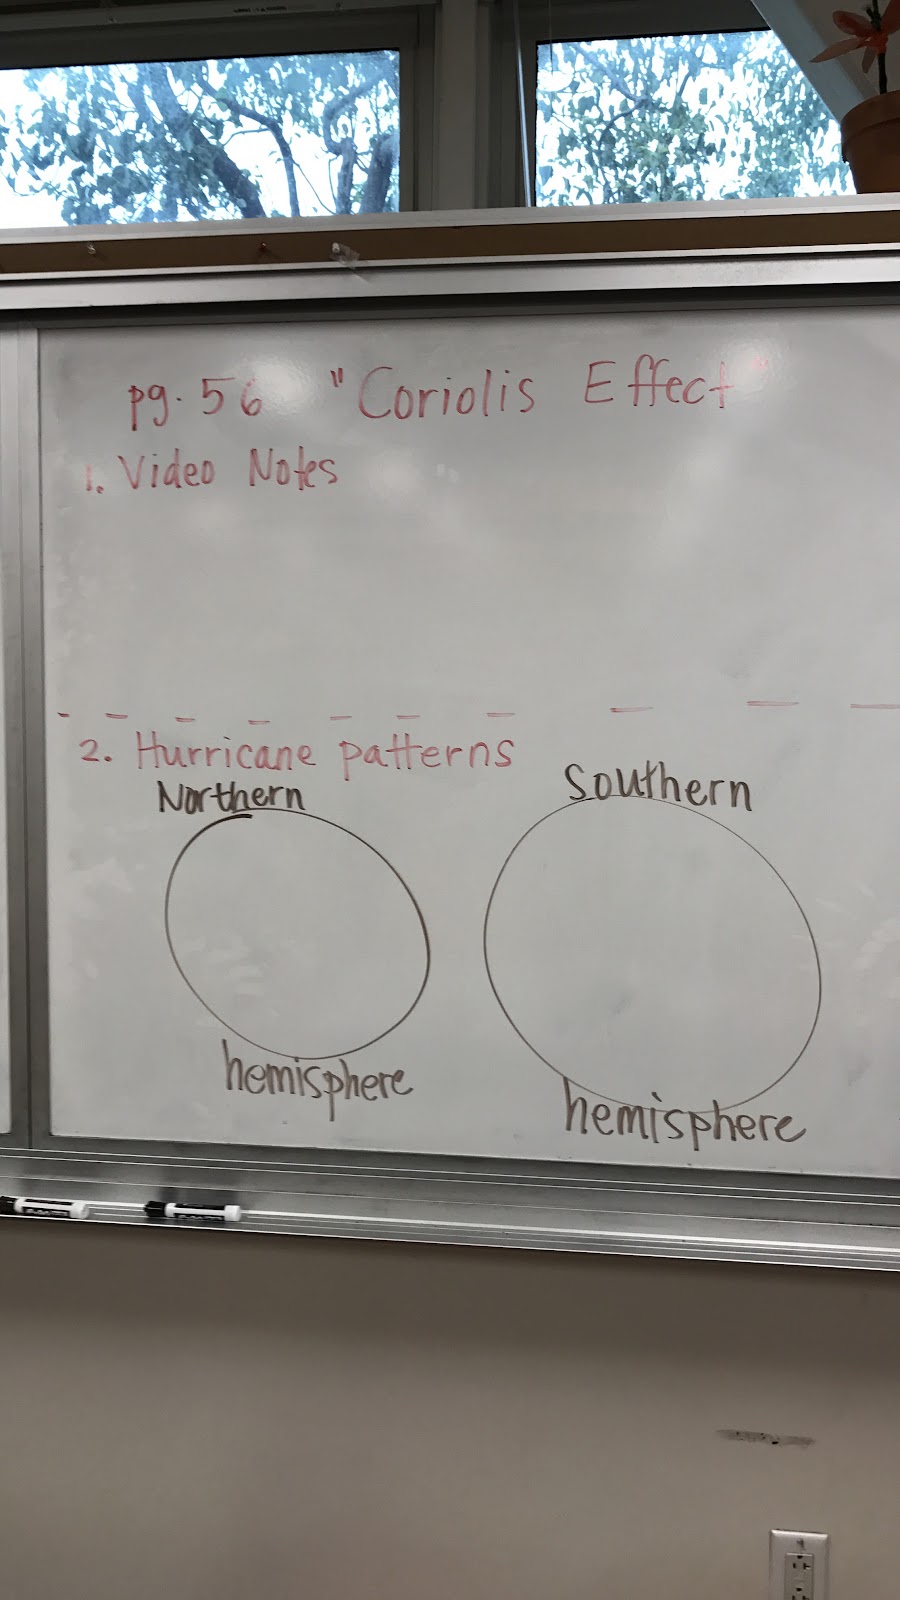 pg. 56 "Coriolis Effect"
1. Video Notes
2. Hurricane patterns
Northern
Southern
hemisphere
hemisphere